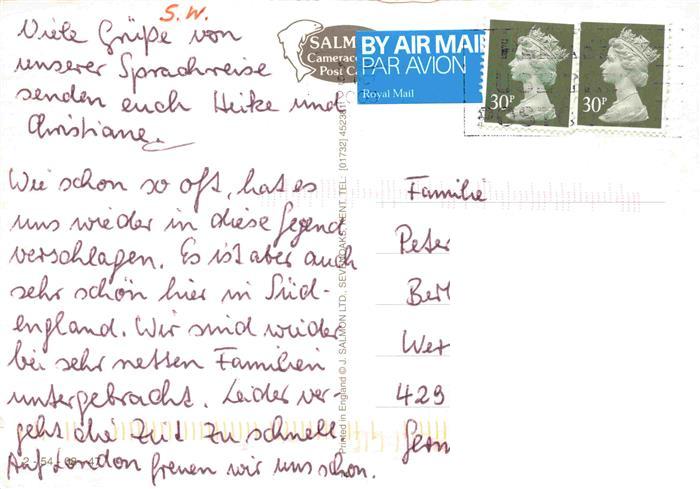 S.W.
Viele Grüße von
unserer Sprachreise
senden euch Heike und
Christiane.
Wie schon so oft, hat es
uns wieder in diese Gegend
verschlagen. Es ist aber auch
sehr schön hier in Süd-
england. Wir sind wieder
bei sehr netten Familien
untergebracht. Leider ver-
geht die Zeit zu schnell.
Auf London freuen wir uns schon.
SALM
Cameraco
Post Ca
BY AIR MAIL
PAR AVION
Royal Mail
30P
30P
Printed in England © J. SALMON LTD., SEVENOAKS, KENT. TEL: (01732) 4523
Familie
Peter
Berl
Wer
429
Germ
2-54-08-47